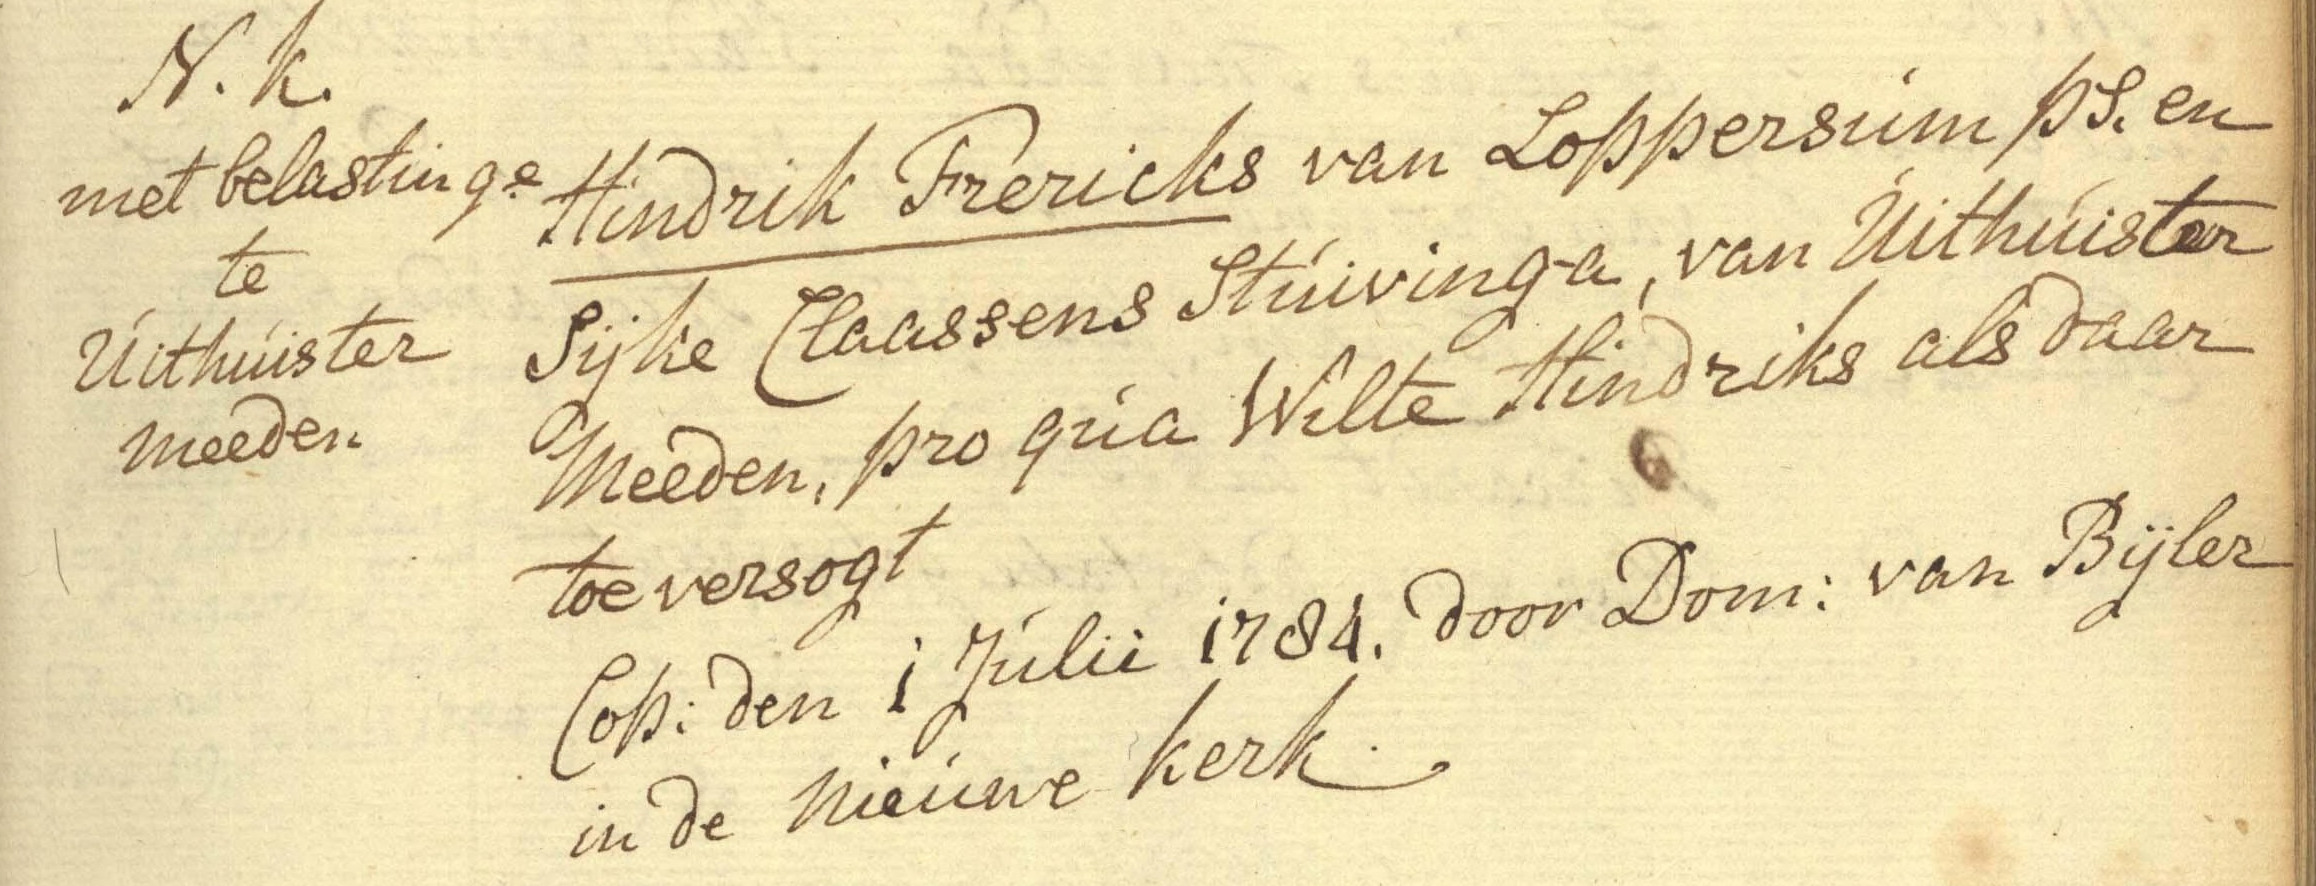 N. k.
met belastinge
te
Uithuister
meeden
Hindrik Frericks van Loppersum pS. en
Sijke Claassens Stuivinga, van Uithuister
Meeden, pro qua Wilte Hindriks als daar
toe versogt
Cop: den 1 Julii 1784. door Dom: van Bijler
in de Nieuwe kerk.